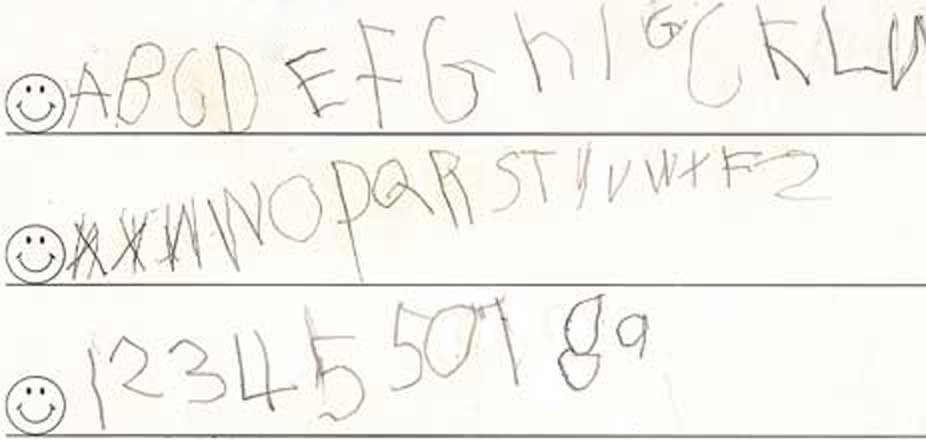 A B C D E F G h I G C K L
N O P Q R S T V W X F 2
1 2 3 4 5 5 0 7 8 9